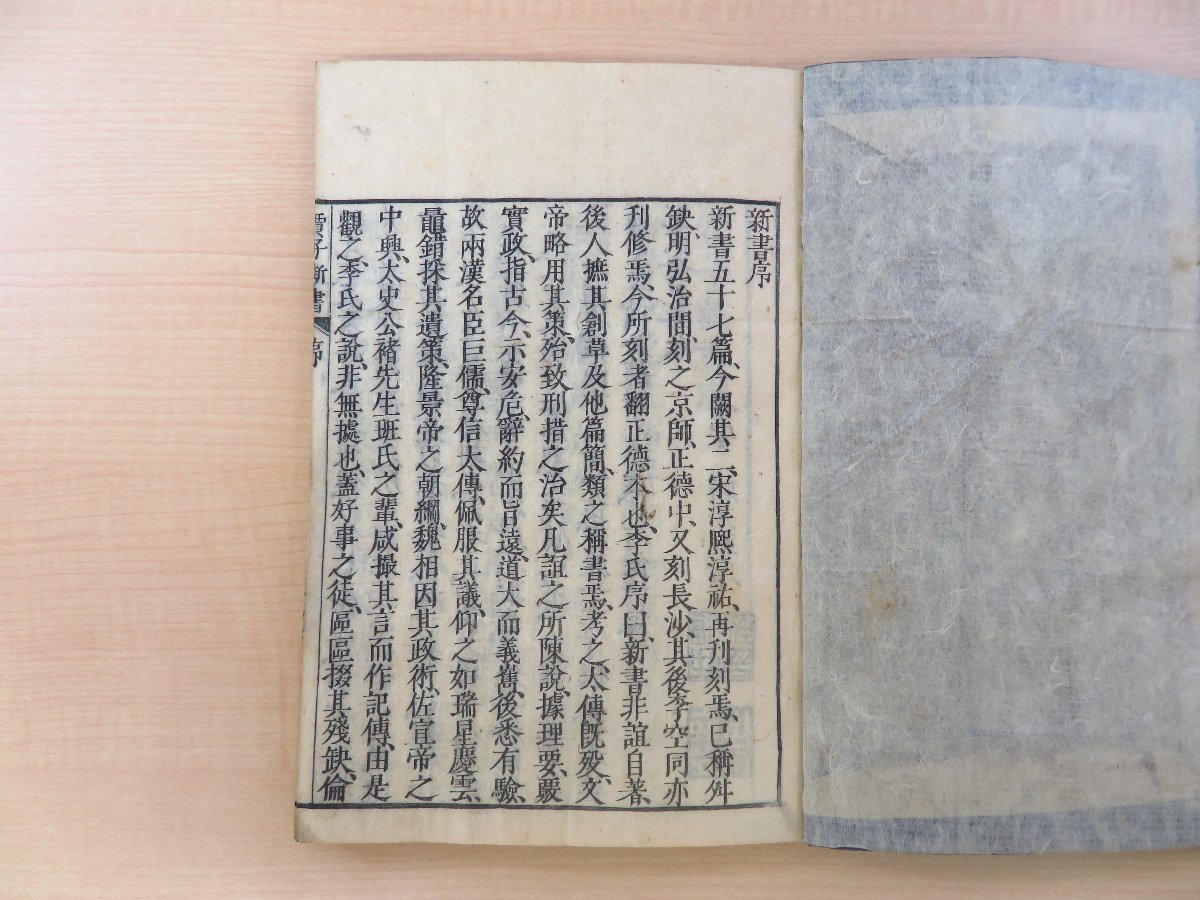 新書序
新書五十七篇、今闕其二、宋淳熙淳祐、再刊刻焉、已稱舛
缺、明弘治間、刻之京師、正德中、又刻長沙、其後李空同亦
刊修焉、今所刻者翻正德本也、李氏序曰、新書非誼自著、
後人摭其創草及他篇簡、類之稱書焉、考之、太傅既歿、文
帝略用其策、殆致刑措之治矣、凡誼之所陳說、據理要、覈
實政、指古今、示安危、辭約而旨遠、道大而義雋、後悉有驗、
故兩漢名臣巨儒、尊信太傅、佩服其議、仰之如瑞星慶雲、
鼂錯採其遺策、隆景帝之朝綱、魏相因其政術、佐宣帝之
中興、太史公褚先生班氏之輩、咸撮其言而作記傳、由是
觀之、李氏之說、非無據也、蓋好事之徒、區區掇其殘缺、倫
賈子新書 序